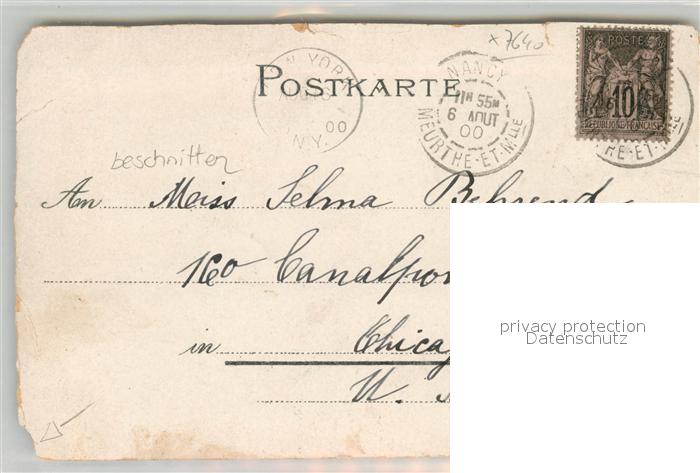 × 7640
POSTKARTE
NEW YORK
00
N.Y.
NANCY
11H 55M
6 AOUT
00
MEURTHE-ET-MLLE
POSTE
10
REPUBLIQUE FRANCAISE
HE-ET-M
beschnitten
An Meiss Selma Behrend
160 Canalpor
in Chica
U.
privacy protection
Datenschutz